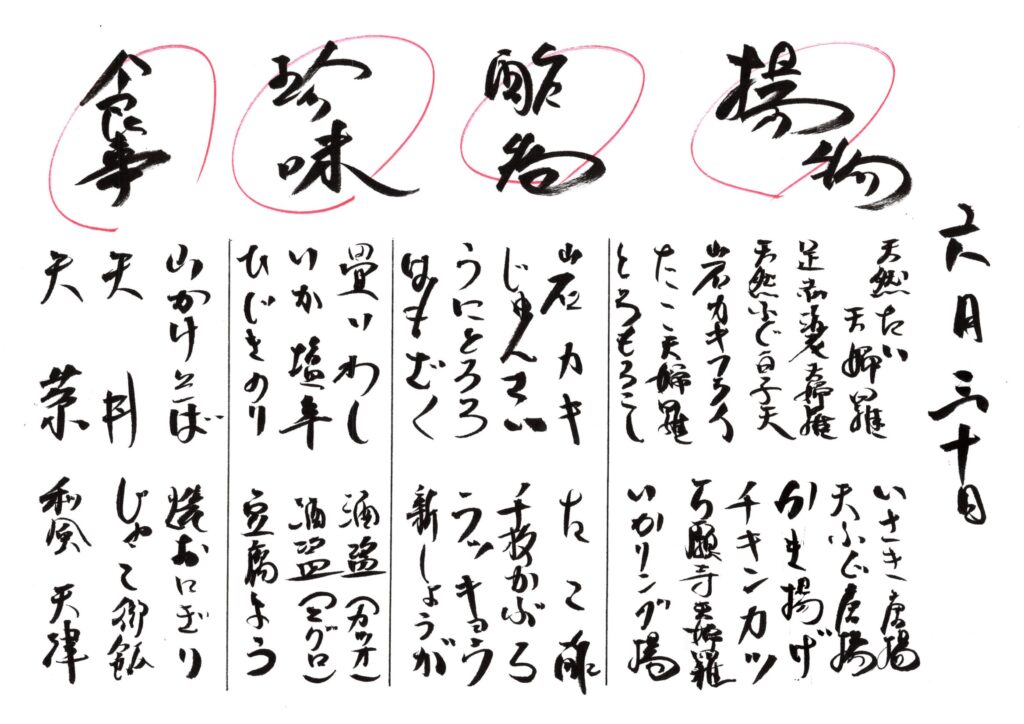 六月三十日
揚物
天然たい
天婦羅
足赤海老天婦羅
天然ふぐ白子天
岩カキフライ
たこ天婦羅
とうもろこし
いさき唐揚
天ふぐ唐揚
かき揚げ
チキンカツ
万願寺天婦羅
いかリング揚
酢物
岩カキ
じゅんさい
うにとろろ
はもずく
たこ酢
千枚かぶら
ラッキョウ
新しょうが
珍味
畳いわし
いか塩辛
ひじきのり
酒盗(カツオ)
酒盗(マグロ)
豆腐よう
食事
山かけそば
天丼
天茶
焼おにぎり
じゃこ御飯
和風天津